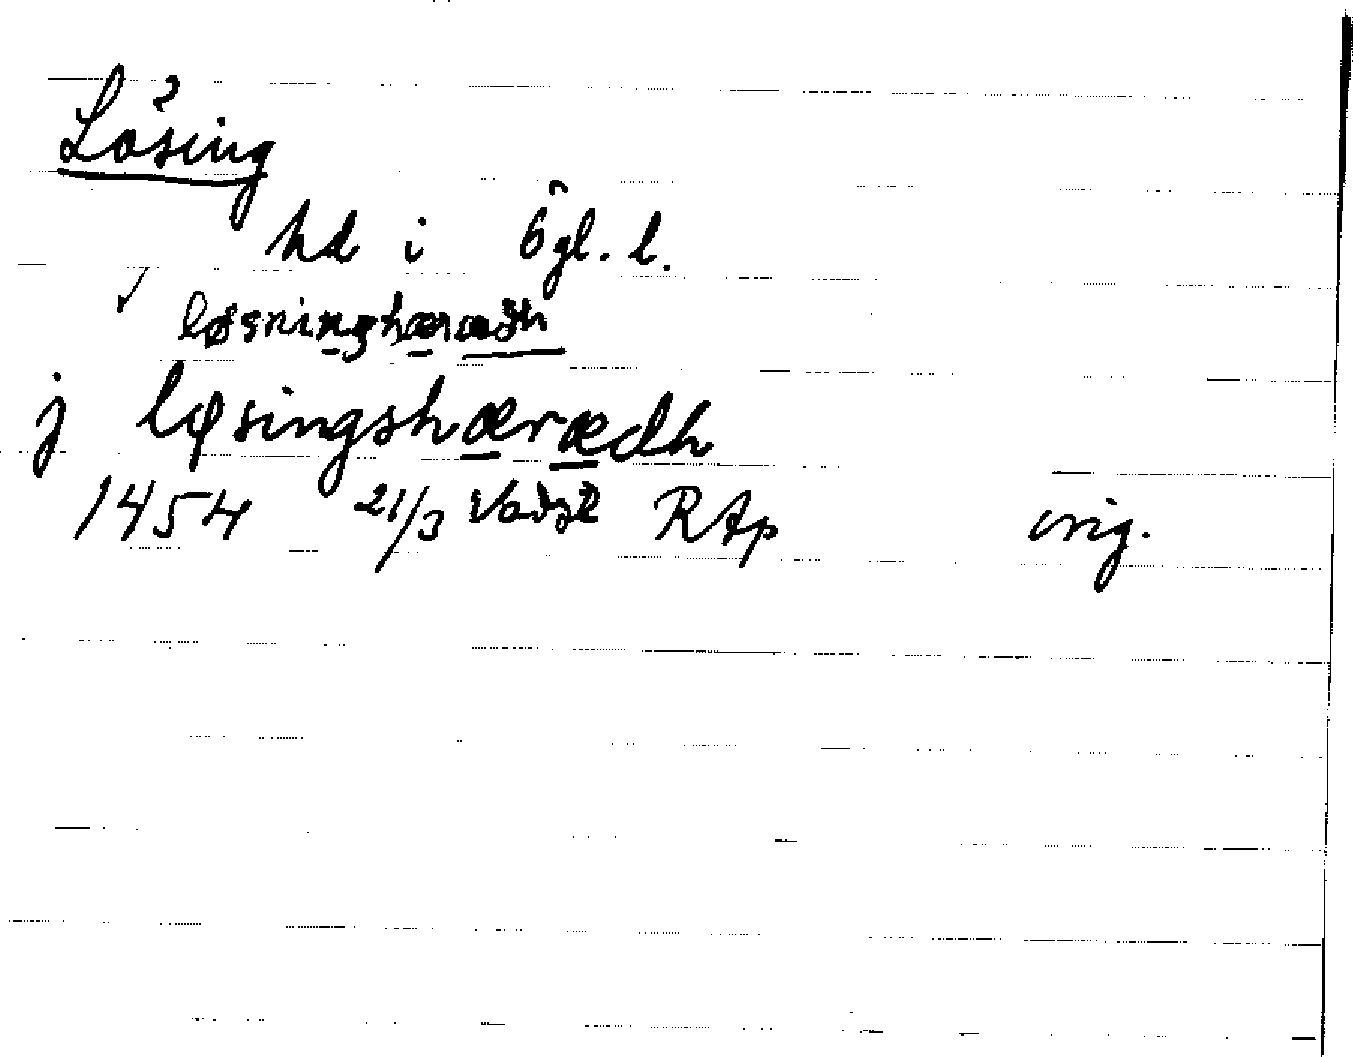 Lösing
hd i Ögl. l.
løsninghærædh
j løsingshærædh
1454 21/3 RAp orig.